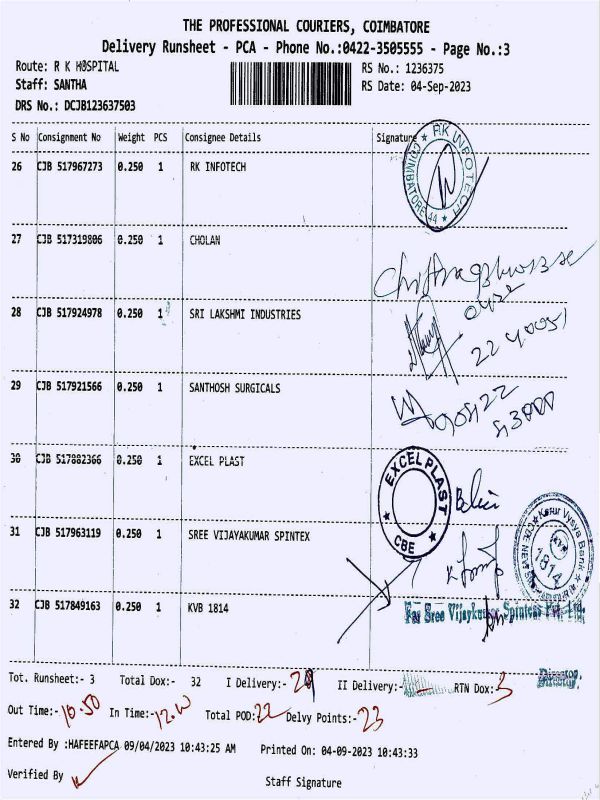 THE PROFESSIONAL COURIERS, COIMBATORE
Delivery Runsheet - PCA - Phone No.:0422-3505555 - Page No.:3
Route: R K HOSPITAL
RS No.: 1236375
Staff: SANTHA
RS Date: 04-Sep-2023
DRS No.: DCJB123637503
S No Consignment No Weight PCS Consignee Details Signature
26 CJB 517967273 0.250 1 RK INFOTECH
RK INFOTECH COIMBATORE 44
27 CJB 517319806 0.250 1 CHOLAN
28 CJB 517924978 0.250 1 SRI LAKSHMI INDUSTRIES
29 CJB 517921566 0.250 1 SANTHOSH SURGICALS
30 CJB 517882366 0.250 1 EXCEL PLAST
EXCEL PLAST CBE
31 CJB 517963119 0.250 1 SREE VIJAYAKUMAR SPINTEX
Karur Vysya Bank
KVB
1814
32 CJB 517849163 0.250 1 KVB 1814
For Sree Vijaykumar Spintex Pvt. Ltd.
Director.
Tot. Runsheet:- 3 Total Dox:- 32 I Delivery:- II Delivery:- RTN Dox:- 3
Out Time:- 10.50 In Time:- Total POD: 22 Delvy Points:- 23
Entered By :HAFEEFAPCA 09/04/2023 10:43:25 AM Printed On: 04-09-2023 10:43:33
Verified By
Staff Signature